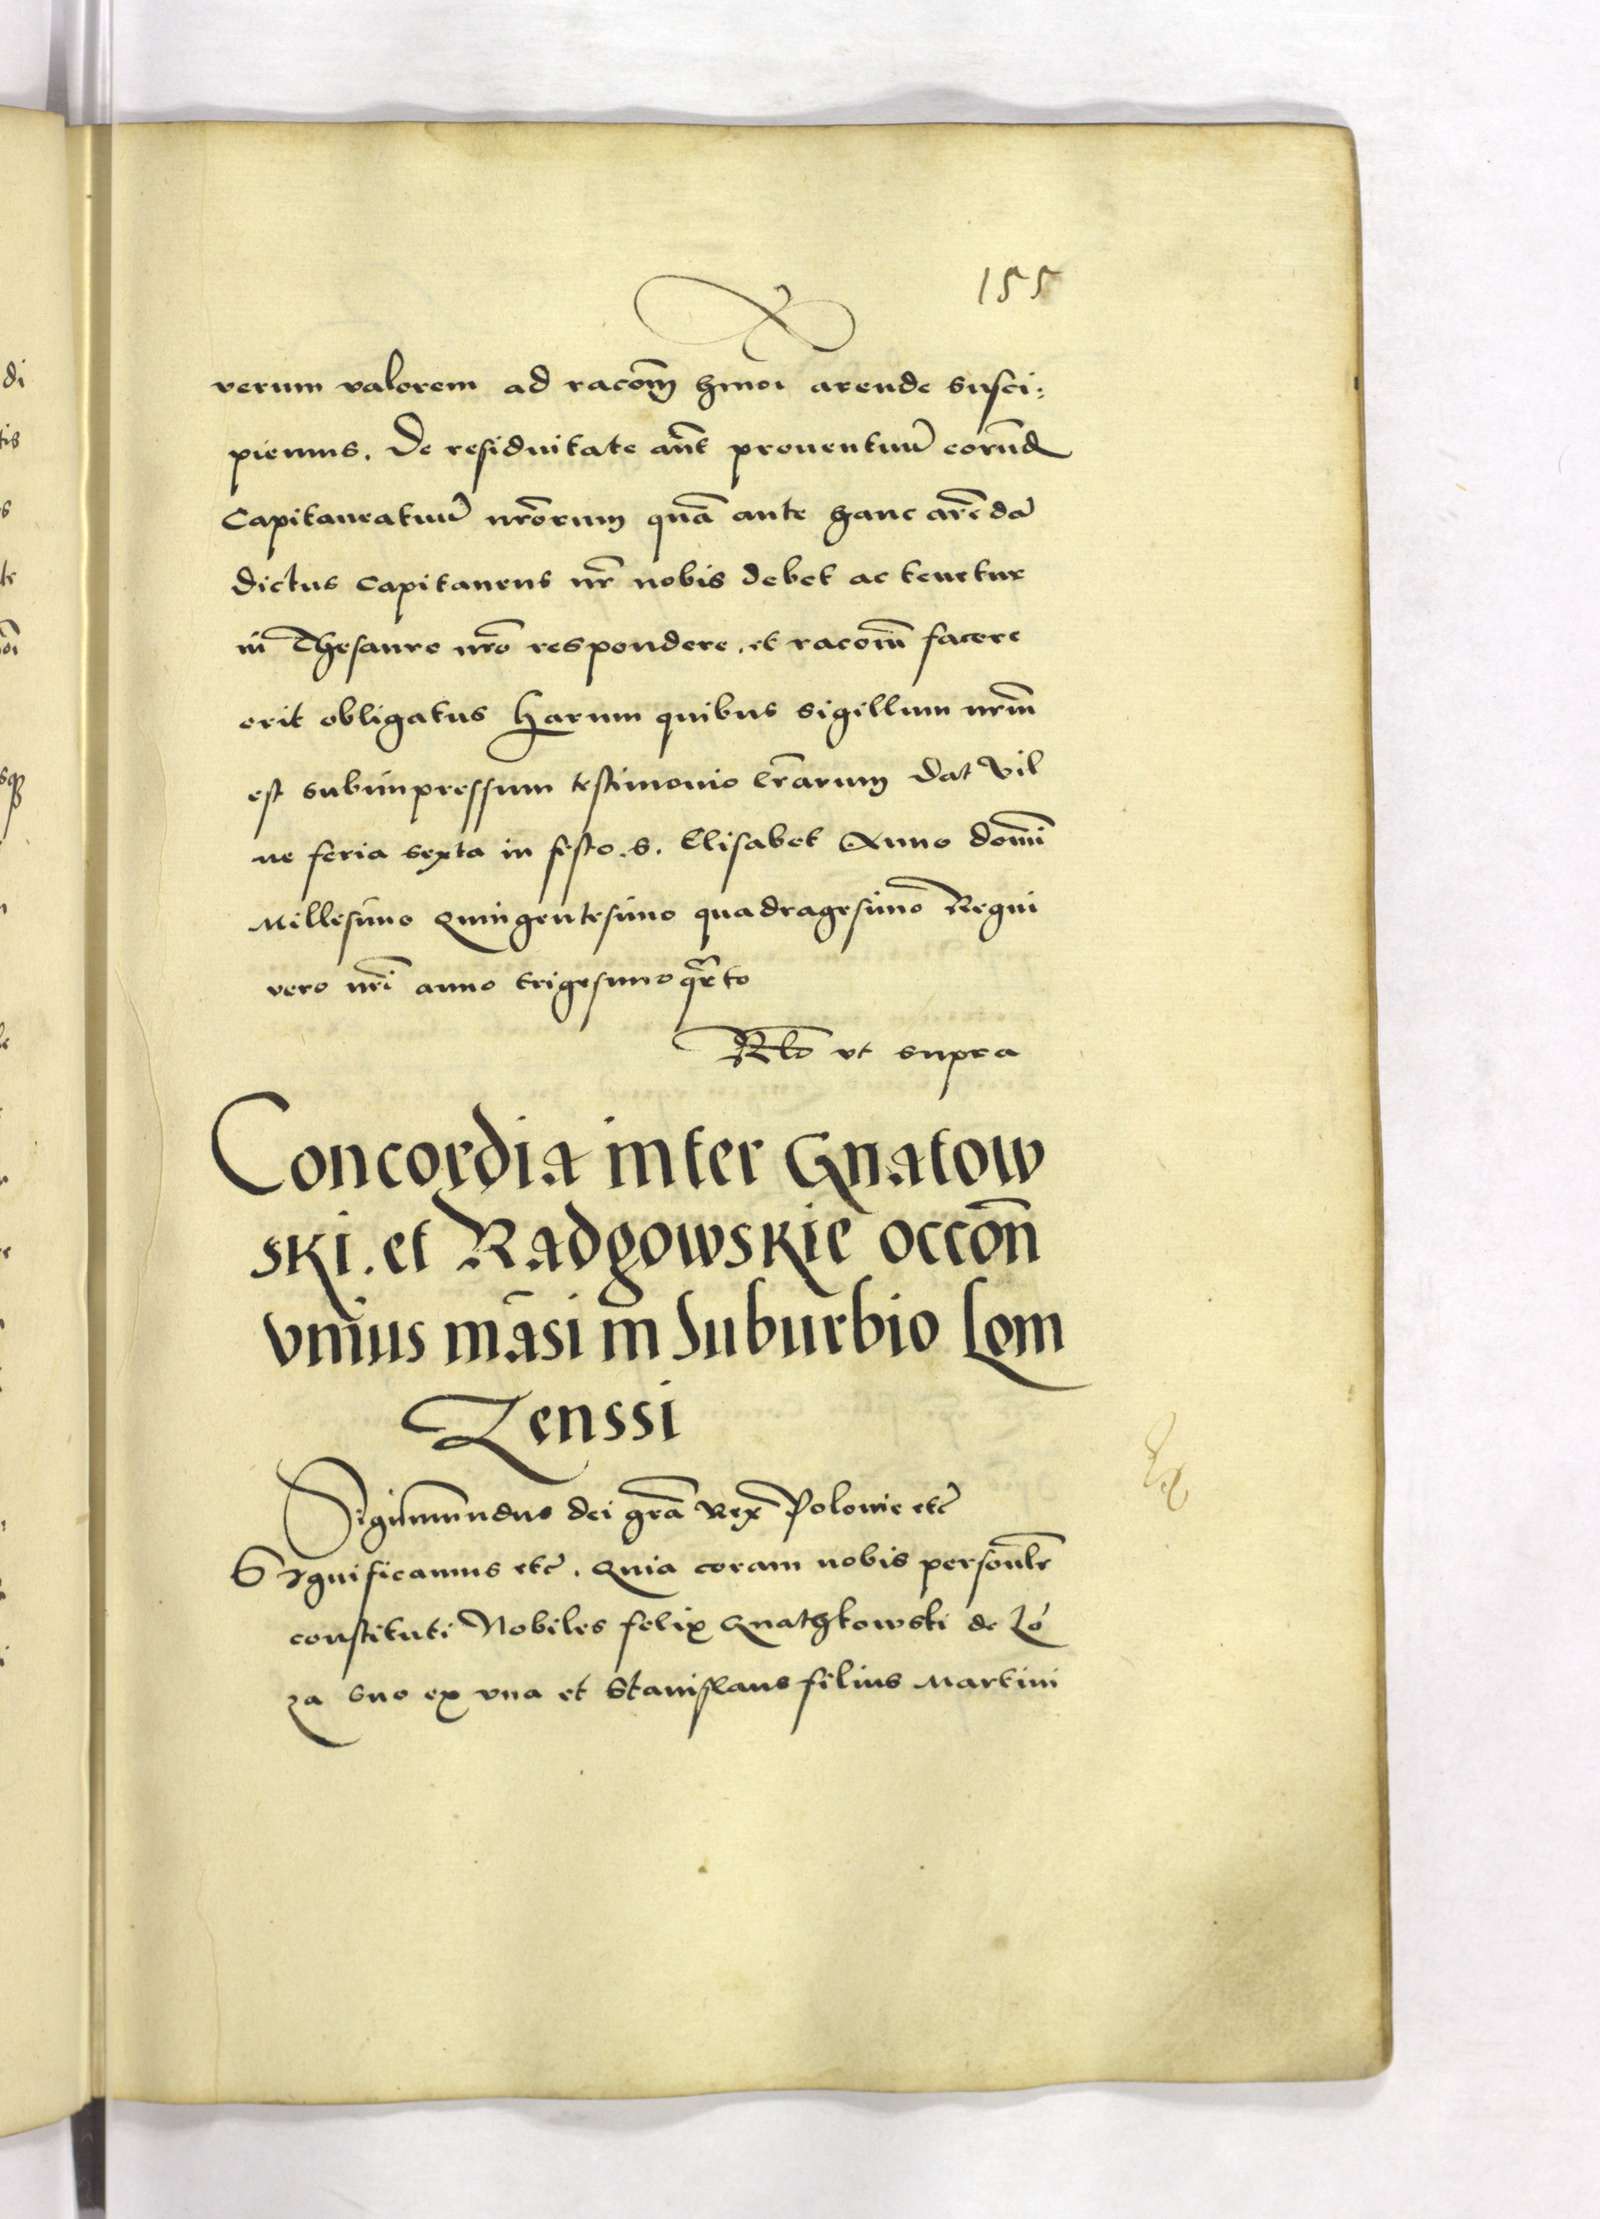 155
verum valorem ad racõm hmoi arende susci:
piemus. De residuitate aũt prouentuũ eorũd
Capitaneatuũ nrõrum quã ante hanc arẽdã
dictus Capitaneus nr̃ nobis debet ac tenetur
in Thesauro nr̃o respondere. et racoñm facere
erit obligatus Harum quibus sigillum nrm̃
est subimpressum testimonio lr̃arum Dat Vil
ne feria sexta in festo. S. Elisabet Anno domĩ
Millesimo Quingentesimo quadragesimõ Regni
vero nr̃i anno trigesimo qr̃to
Rlõ vt supra
Concordia inter Gnatow
ski. et Radgowskie occõn
vnius mãsi in Suburbio Lom
Zenssi
Sigismundus dei gr̃a Rex Polonie etc̃
Significamus etc̃. Quia coram nobis persoñlr
constituti Nobiles felix Gnathkowski de Lo
za suo ex vna et Stanislaus filius Martini